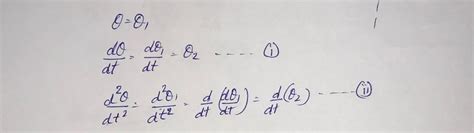 θ = θ₁
dθ/dt = dθ₁/dt = θ₂ ----- (i)
d²θ/dt² = d²θ₁/dt² = d/dt (dθ₁/dt) = d/dt (θ₂) ----- (ii)